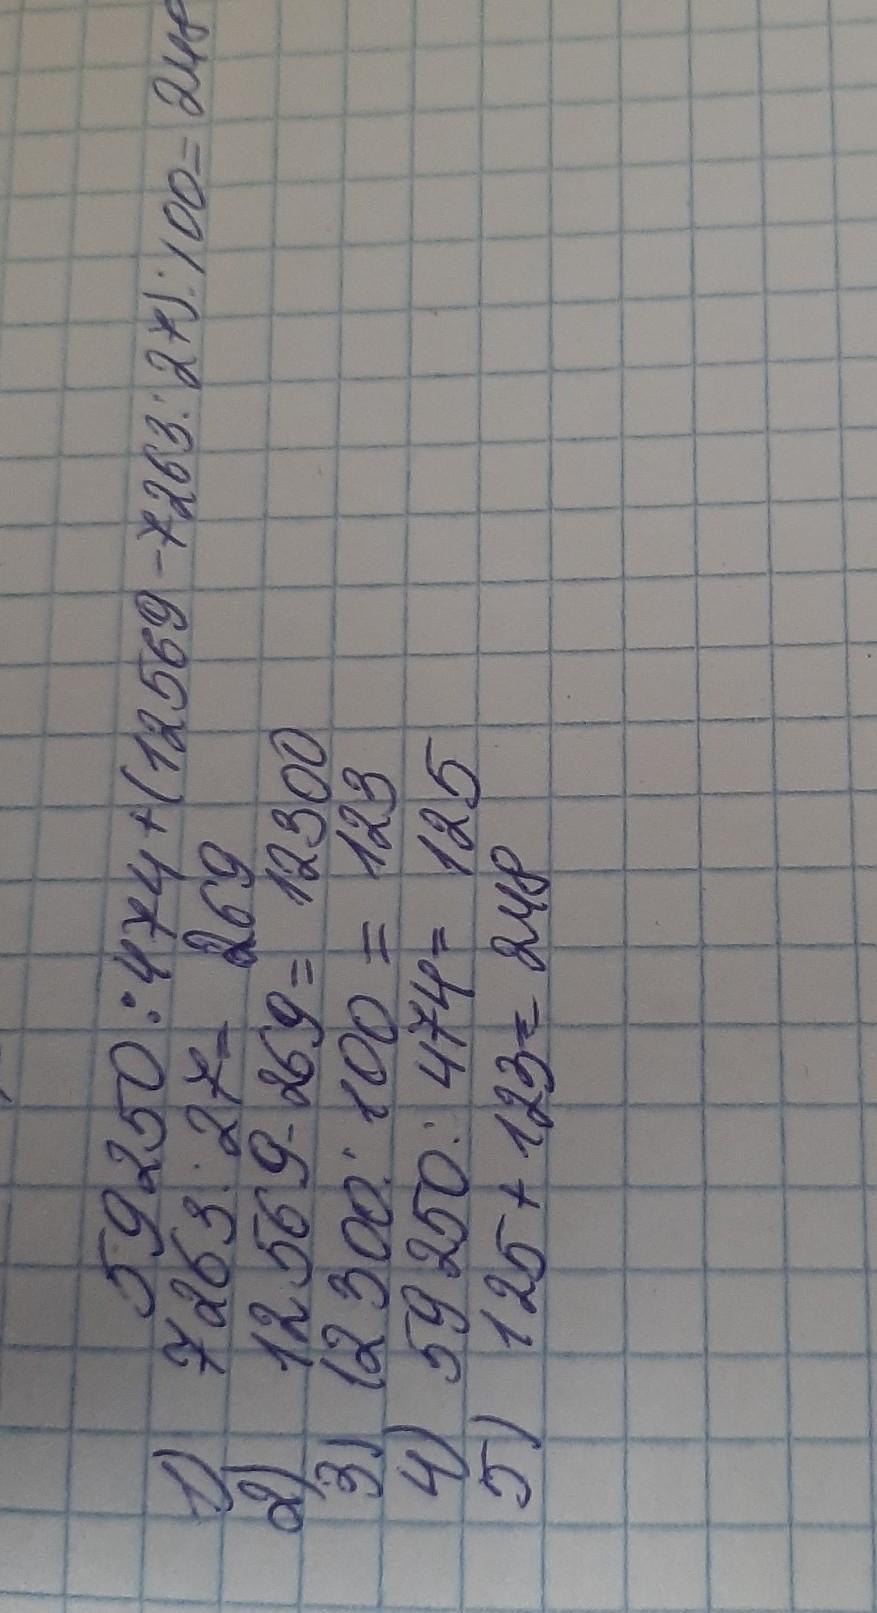 59250:474+(12569-7263:27):100=248
1) 7263:27= 269
2) 12569-269= 12300
3) 12300:100 = 123
4) 59250:474= 125
5) 125+123= 248